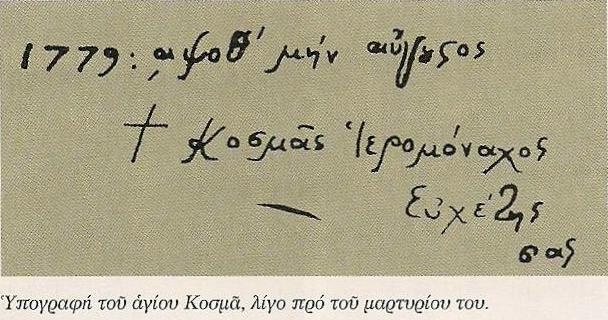 1779: αψοθʹ μήν αὔγουςος
† Κοσμᾶς Ἱερομόναχος
Εὐχέτης
σας
Ὑπογραφή τοῦ ἁγίου Κοσμᾶ, λίγο πρό τοῦ μαρτυρίου του.